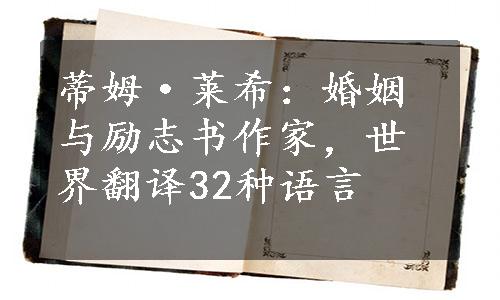 蒂姆·莱希：婚姻
与励志书作家，世
界翻译32种语言